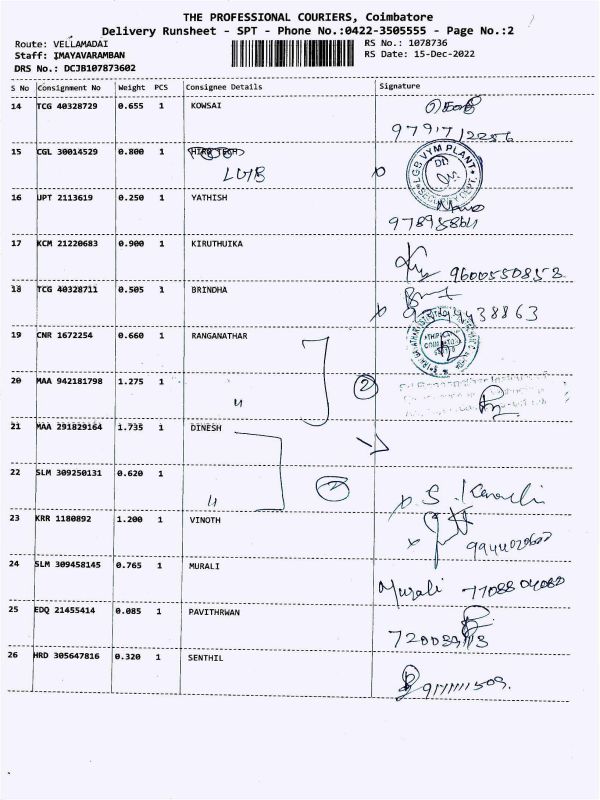 THE PROFESSIONAL COURIERS, Coimbatore
Delivery Runsheet - SPT - Phone No.:0422-3505555 - Page No.:2
Route: VELLAMADAI
RS No.: 1078736
Staff: IMAYAVARAMBAN
RS Date: 15-Dec-2022
DRS No.: DCJB107873602
S No Consignment No Weight PCS Consignee Details Signature
14 TCG 40328729 0.655 1 KOWSAI
15 CGL 30014529 0.800 1
LGB
LGB VYM PLANT
SECURITY DEPT.
16 JPT 2113619 0.250 1 YATHISH
17 KCM 21220683 0.900 1 KIRUTHUIKA
9600550853
18 TCG 40328711 0.505 1 BRINDHA
19 CNR 1672254 0.660 1 RANGANATHAR
20 MAA 942181798 1.275 1 〃
2
21 MAA 291829164 1.735 1 DINESH
22 SLM 309250131 0.620 1 〃
23 KRR 1180892 1.200 1 VINOTH
24 SLM 309458145 0.765 1 MURALI
Murali
25 EDQ 21455414 0.085 1 PAVITHRWAN
26 HRD 305647816 0.320 1 SENTHIL